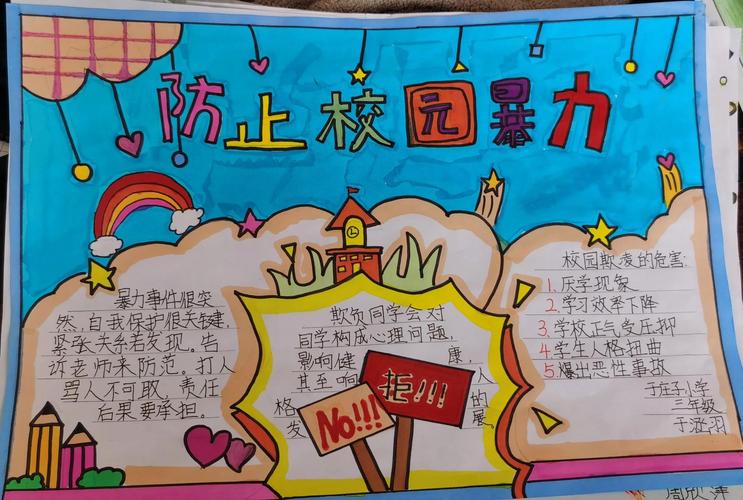 防止校园暴力
暴力事件很突
然,自我保护很关键,
紧张关系若发现。告
诉老师来防范。打人
骂人不可取,责任
后果要承担。
欺负同学会对
同学构成心理问题,
影响健康,
甚至响人
格的
发展。
No!!!
拒!!!
校园欺凌的危害:
1.厌学现象
2.学习效率下降
3.学校正气受压抑
4.学生人格扭曲
5.爆出恶性事故
于庄子小学
三年级
于涵羽
周欣